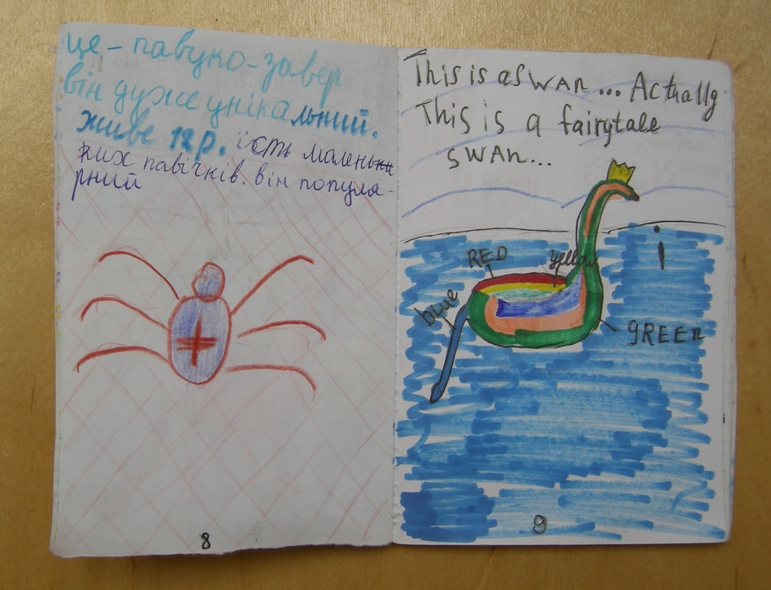 це - павуко-завер
він дуже унікальний.
живе 12р. їсть малень
ких павічків. він популя-
рний
8
This is a swan... Actually
This is a fairytale
swan...
RED
yellow
blue
GREEN
9